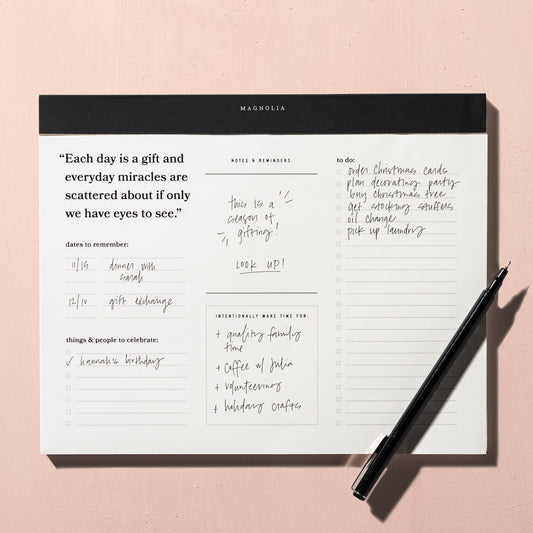 MAGNOLIA
“Each day is a gift and
everyday miracles are
scattered about if only
we have eyes to see.”
dates to remember:
11/15 dinner with
sarah
12/10 gift exchange
things & people to celebrate:
✓ hannah's birthday
NOTES & REMINDERS:
this is a
season of
gifting!
LOOK UP!
INTENTIONALLY MAKE TIME FOR:
+ quality family
time
+ coffee w/ Julia
+ volunteering
+ holiday crafts
to do:
order Christmas cards
plan decorating party
buy Christmas tree
get stocking stuffers
oil change
pick up laundry